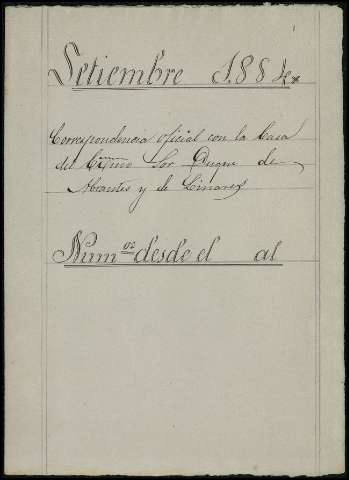 Setiembre 1.884.
Correspondencia oficial con la Casa
del Exmo Sor Duque de
Abrantes y de Linares
Numos desde el al